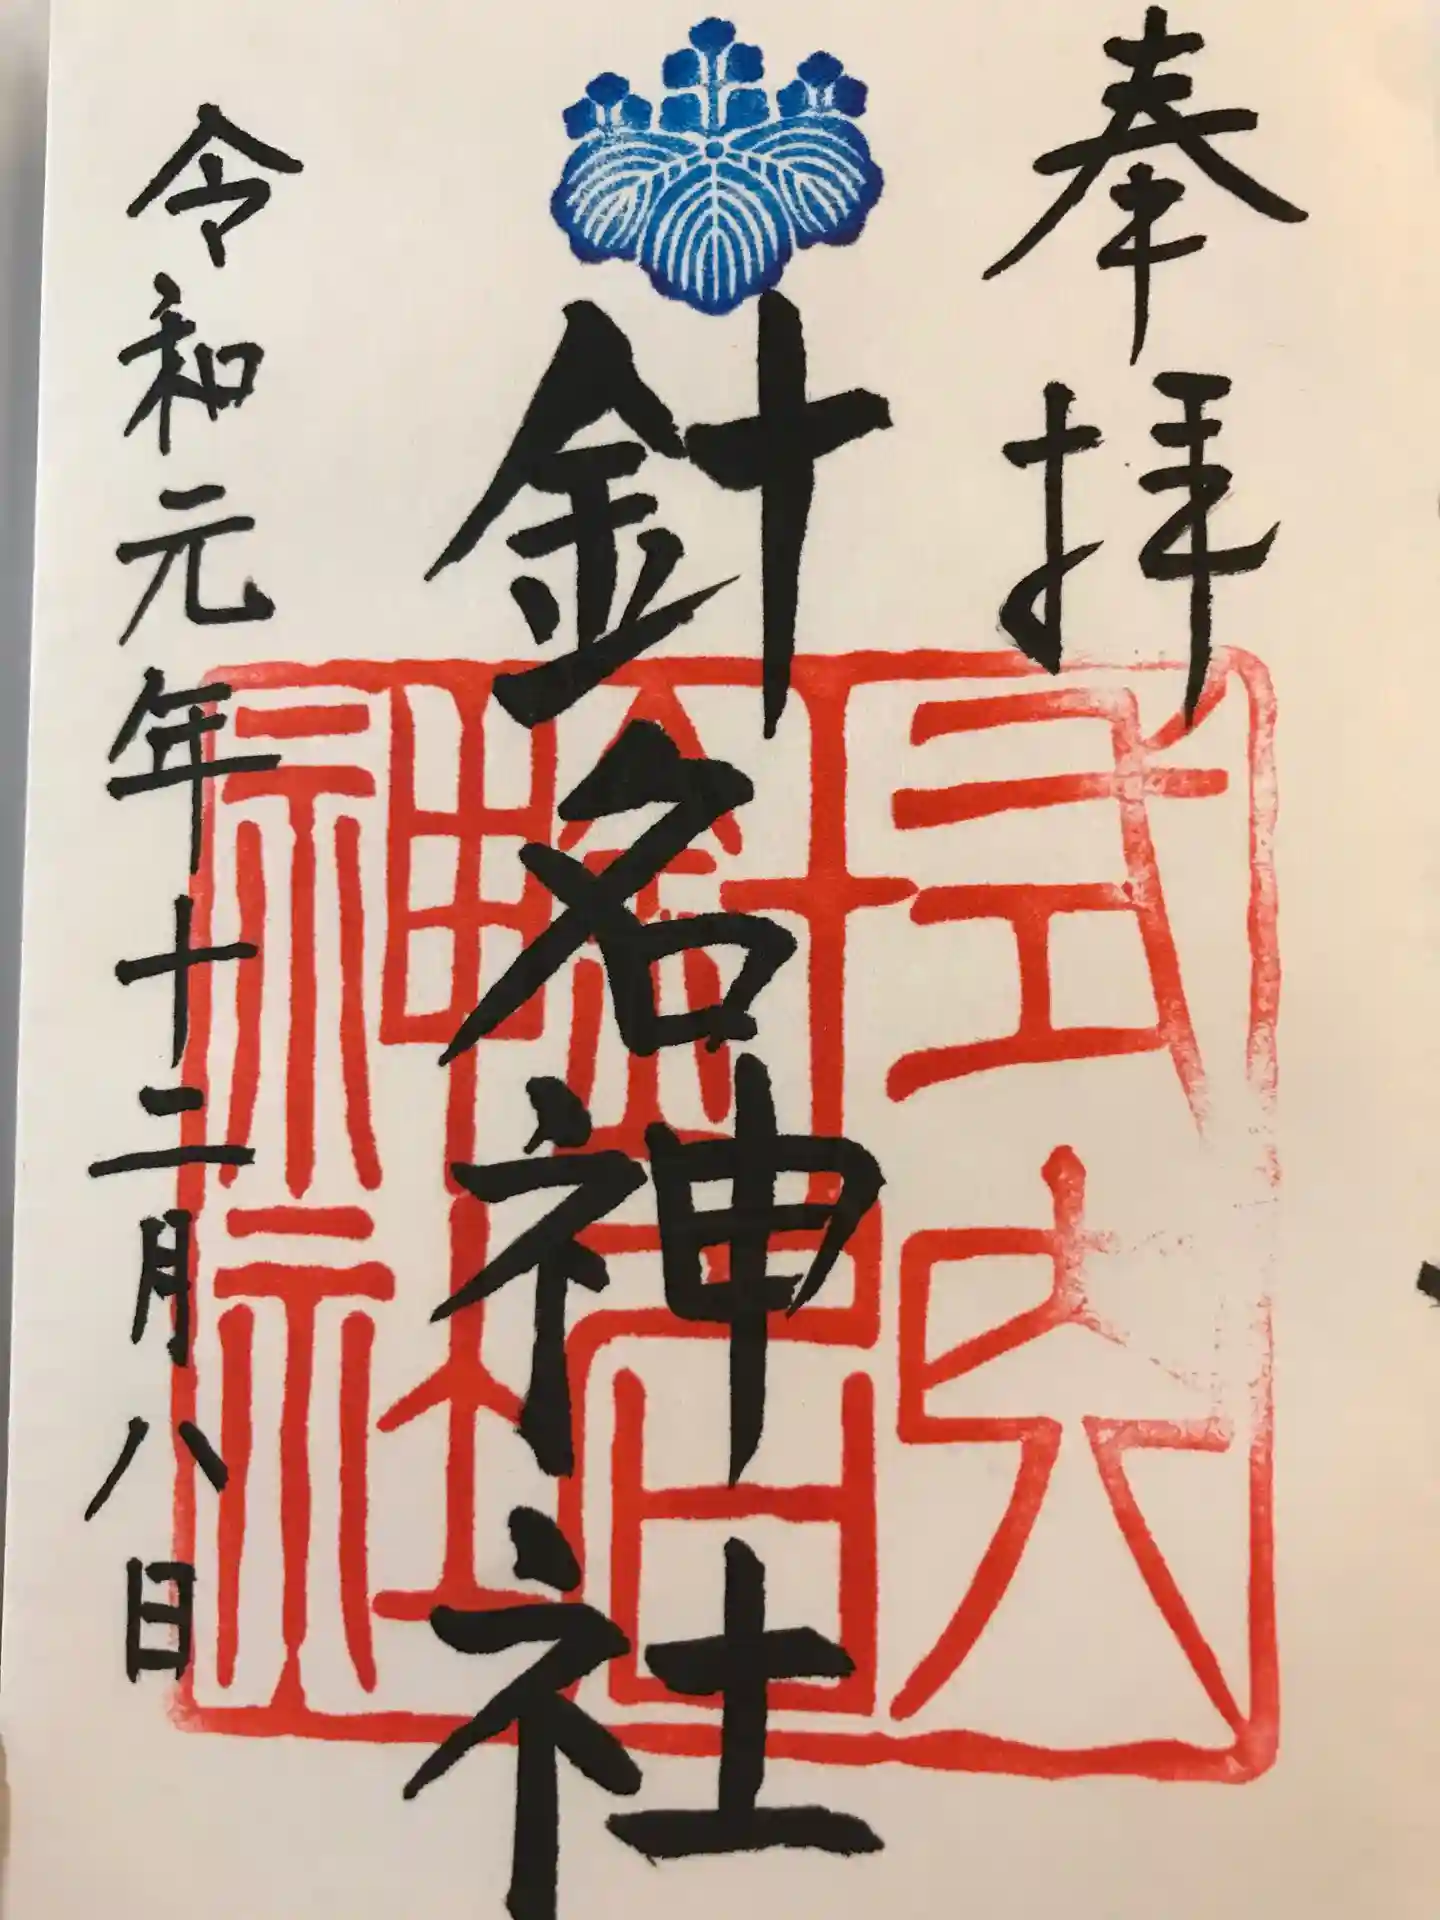 奉拝
針名神社
式内
針名
神社
令和元年十二月八日